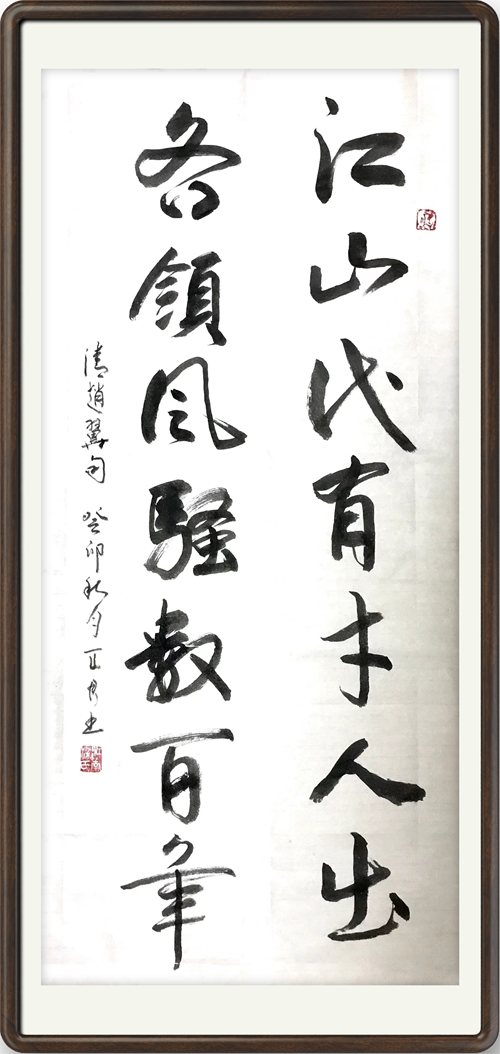 江山代有才人出
各领风骚数百年
清趙翼句 癸卯秋月 書